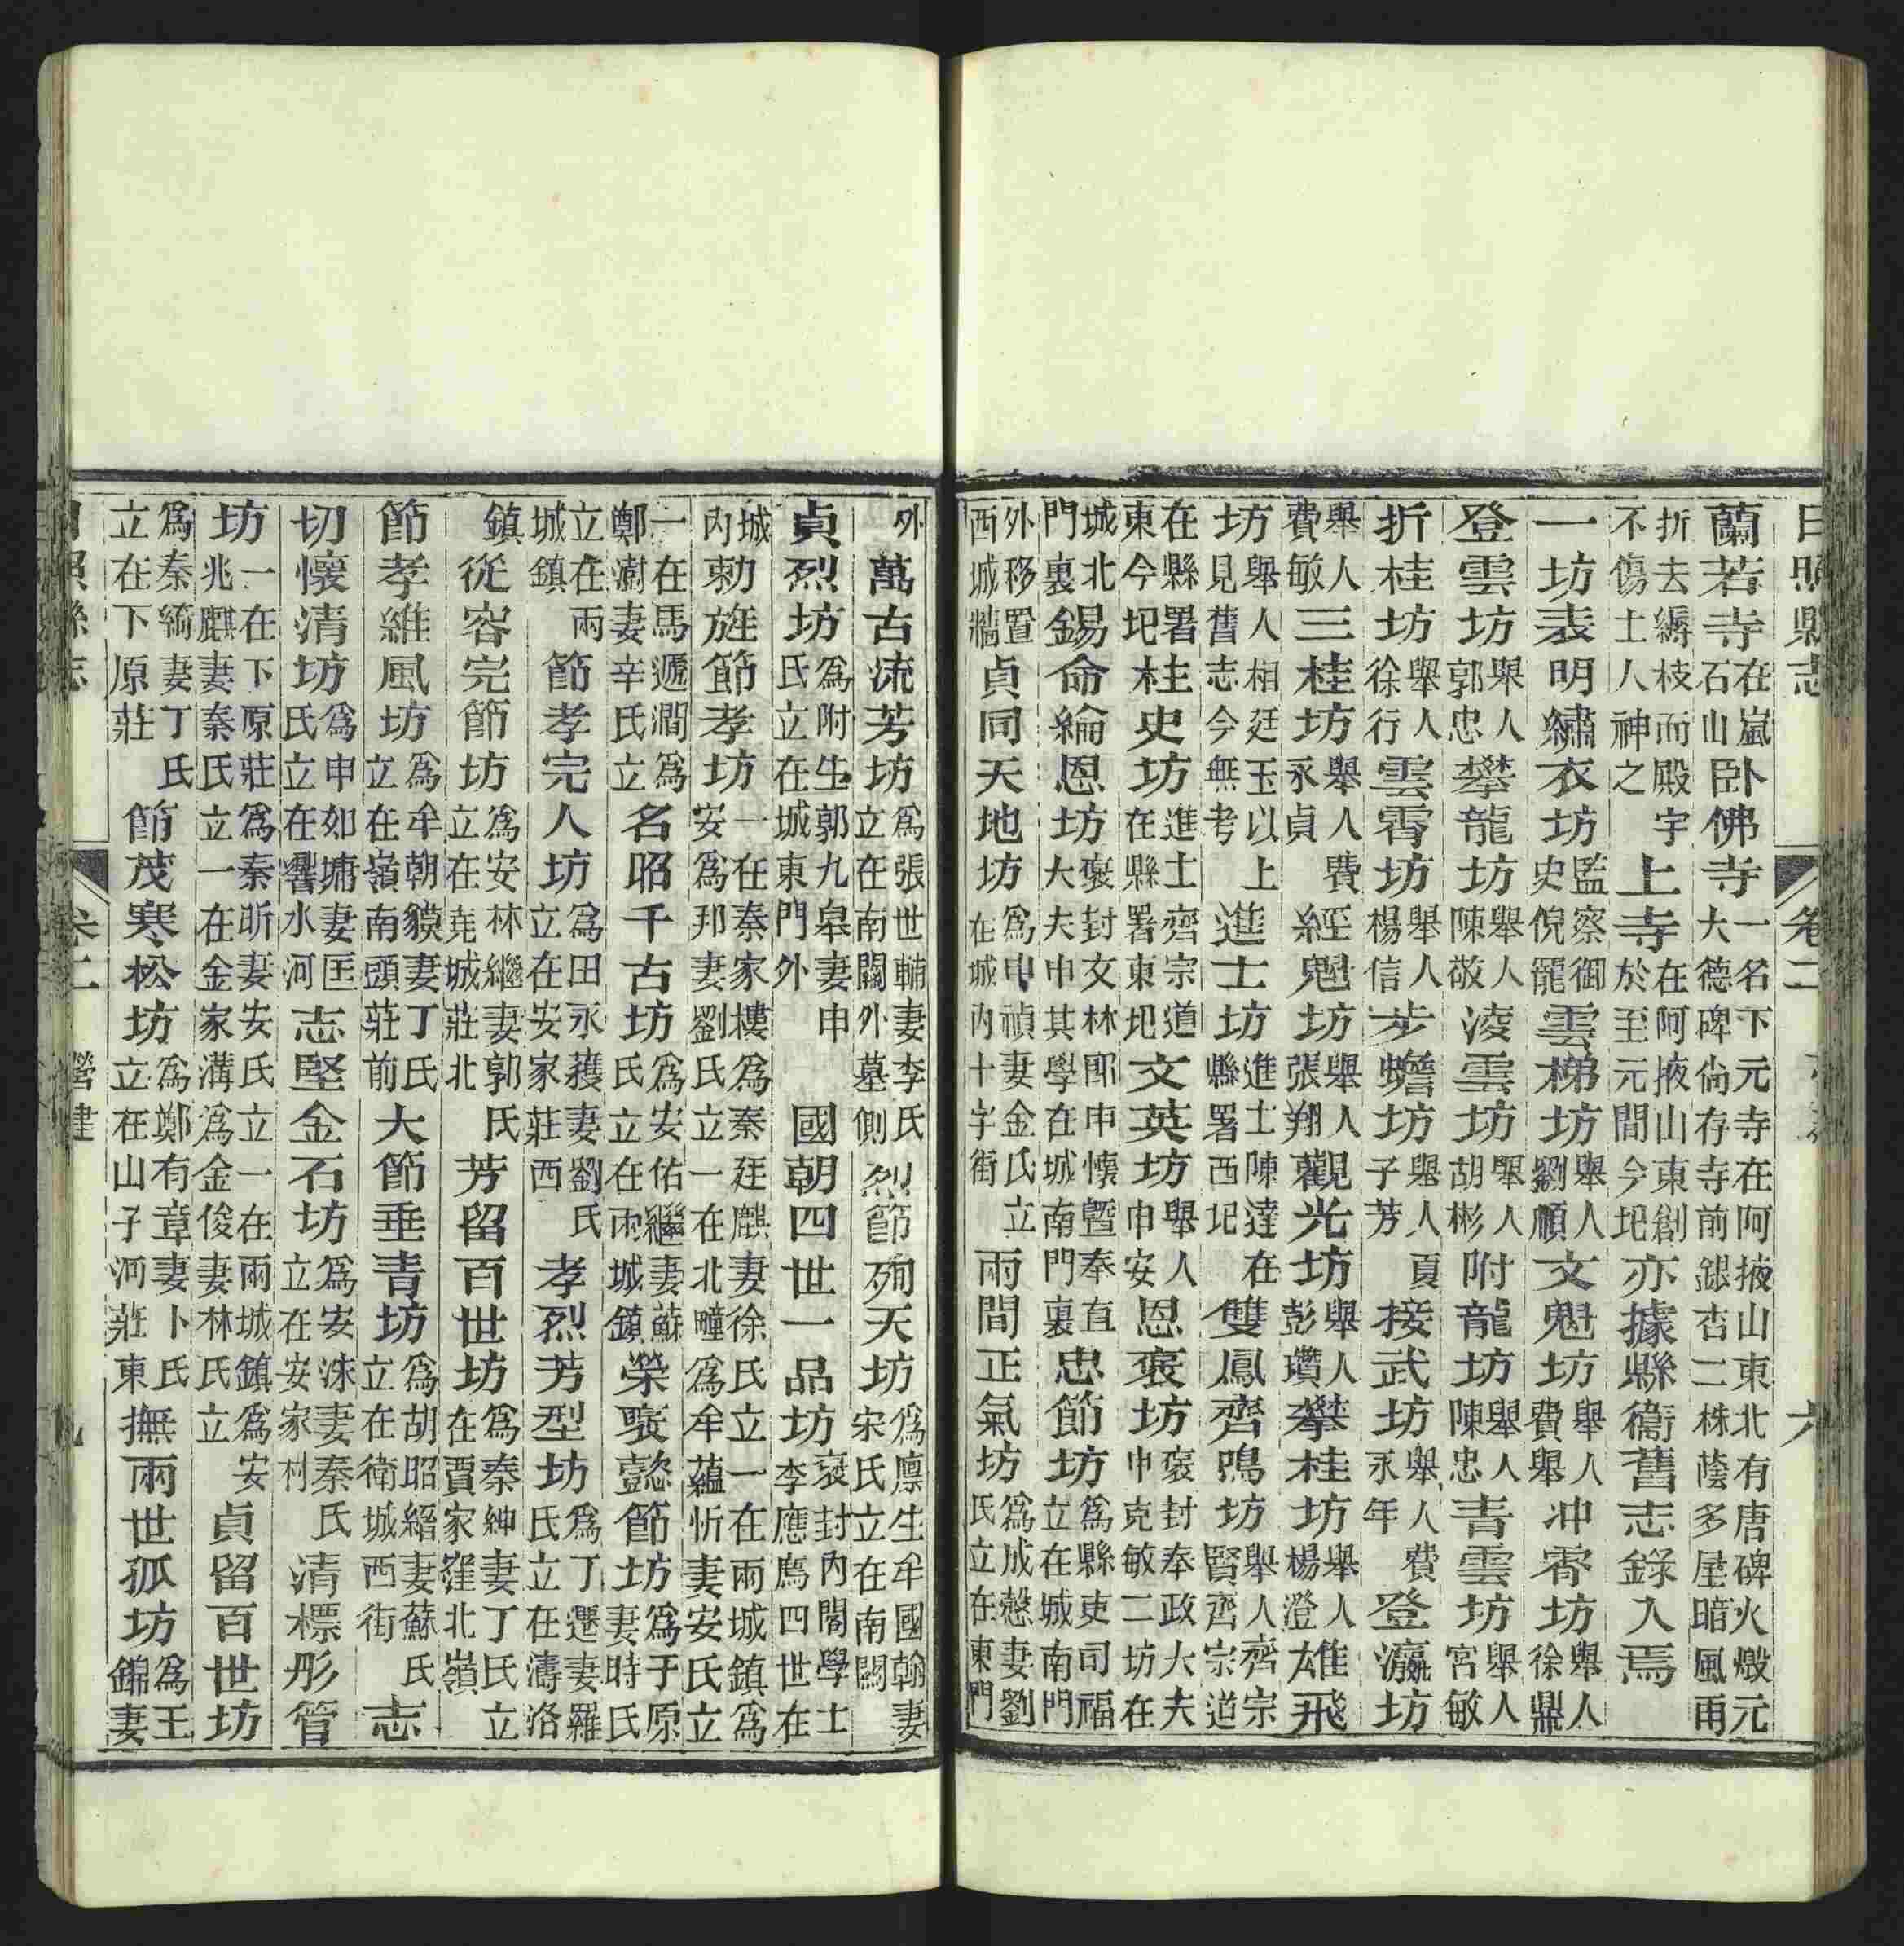 日照縣志 卷二 六
蘭若寺在嵐石山臥佛寺一名下元寺在阿掖山東北有唐碑火燬元大德碑尚存寺前銀杏二株蔭多屋暗風雨
折去縟枝而殿宇不傷土人神之上寺在阿掖山東創於至元間今圮亦據縣衙舊志錄入焉
一坊表明繡衣坊監察御史倪寵雲梯坊舉人劉順文魁坊舉人費舉冲霄坊舉人徐鼎
登雲坊舉人郭忠攀龍坊舉人陳敬淩雲坊舉人胡彬附龍坊舉人陳忠青雲坊舉人宮敏
折桂坊舉人徐行雲霄坊舉人楊信步蟾坊舉人夏子芳接武坊舉人費永年登瀛坊
舉人費敏三桂坊舉人費永貞經魁坊舉人張翔觀光坊舉人彭瓚攀桂坊舉人楊澄雄飛
坊舉人相廷玉以上見舊志今無考進士坊進士陳達在縣署西圮雙鳳齊鳴坊舉人齊宗賢齊宗道
在縣署東今圮柱史坊進士齊宗道在縣署東圮文英坊舉人申安恩褒坊褒封奉政大夫申克敏二坊在
城北門裏錫命綸恩坊褒封文林郎申懷曁奉直大夫申其學在城南門裏忠節坊為縣吏司福立在城南門
外移置西城牆貞同天地坊為申禎妻金氏立在城內十字街兩間正氣坊為成憖妻劉氏立在東門
外萬古流芳坊為張世輔妻李氏立在南關外墓側烈節殉天坊為廩生牟國翰妻宋氏立在南關
貞烈坊為附生郭九皋妻申氏立在城東門外國朝四世一品坊褒封內閣學士李應廌四世在
城內勅旌節孝坊一在秦家樓為秦廷麒妻徐氏立一在兩城鎮為安為邦妻劉氏立一在北疃為牟蘊忻妻安氏立
一在馬遞澗為鄭澍妻辛氏立名昭千古坊為安佑繼妻蘇氏立在兩城鎮榮褒懿節坊為于原妻時氏
立在兩城鎮節孝完人坊為田永蓛妻劉氏立在安家莊西孝烈芳型坊為丁遷妻羅氏立在濤洛
鎮從容完節坊為安林繼妻郭氏立在堯城莊北芳留百世坊為秦紳妻丁氏立在賈家窪北嶺
節孝維風坊為牟朝貘妻丁氏立在嶺南頭莊前大節垂青坊為胡昭縉妻蘇氏立在衛城西街志
切懷清坊為申如墉妻匡氏立在響水河志堅金石坊為安洙妻秦氏立在安家村清標彤管
坊一在下原莊為秦昕妻安氏立一在兩城鎮為安兆麒妻秦氏立一在金家溝為金俊妻林氏立貞留百世坊
為秦縞妻丁氏立在下原莊節茂寒松坊為鄭有章妻卜氏立在山子河莊東撫兩世孤坊為王錦妻
日照縣志 卷二 營建